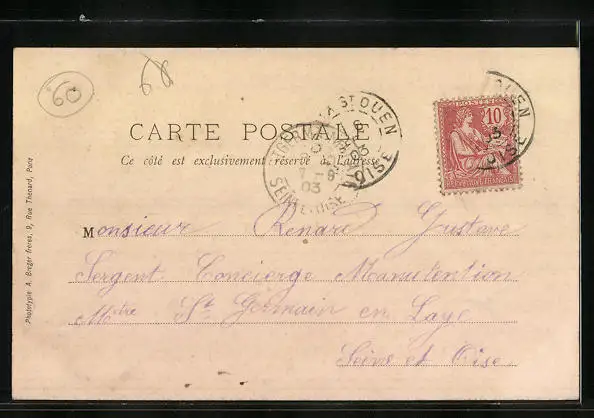 60
68
CARTE POSTALE
Ce côté est exclusivement réservé à l'adresse
POSTES
10
REPUBLIQUE FRANÇAISE
ST OUEN
OISE
SEINE ET OISE
03
OUEN
OISE
Monsieur Renard Gustave
Sergent Concierge Manutention
Mtre St Germain en Laye
Seine et Oise
Phototypie A. Breger frères, 9, Rue Thénard, Paris